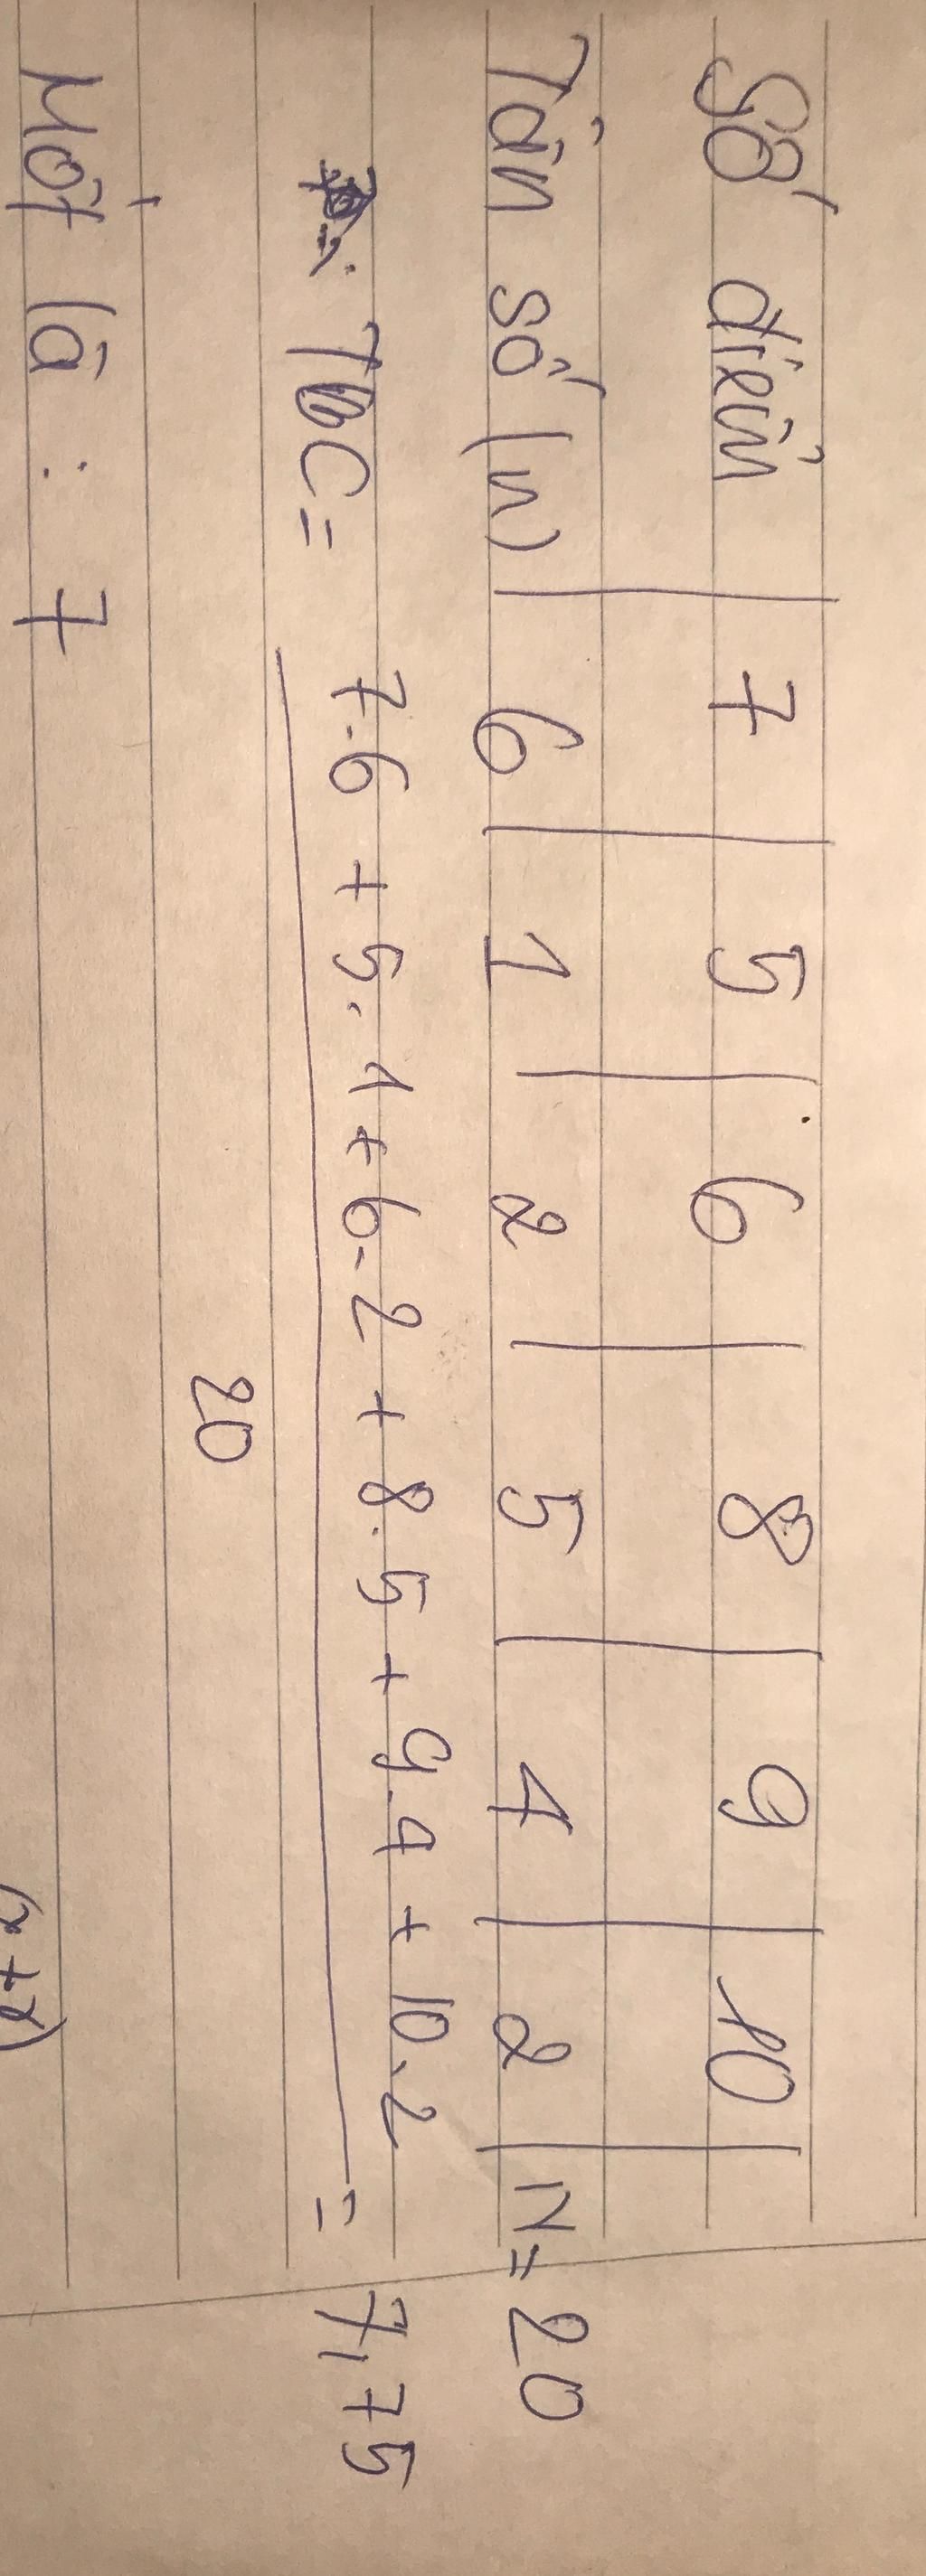 Số điểm 7 5 6 8 9 10
Tần số (n) 6 1 2 5 4 2 N = 20
TBC = 7.6 + 5.1 + 6.2 + 8.5 + 9.4 + 10.2 = 7,75
20
Mốt là : 7
(x+2)